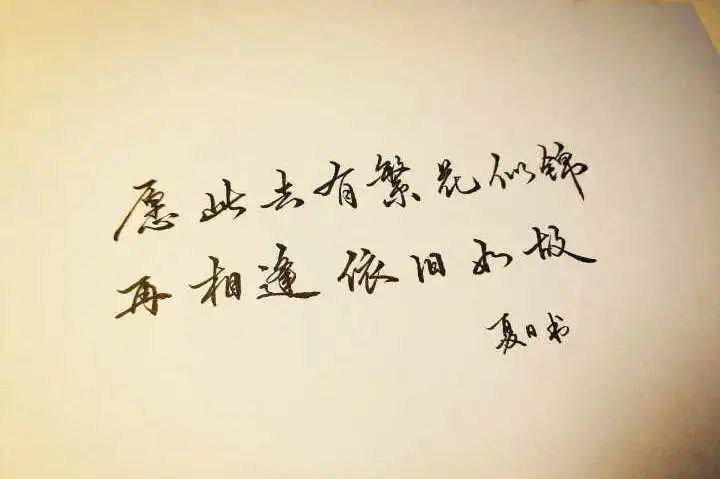 愿此去有繁花似锦
再相逢依旧如故
夏日书